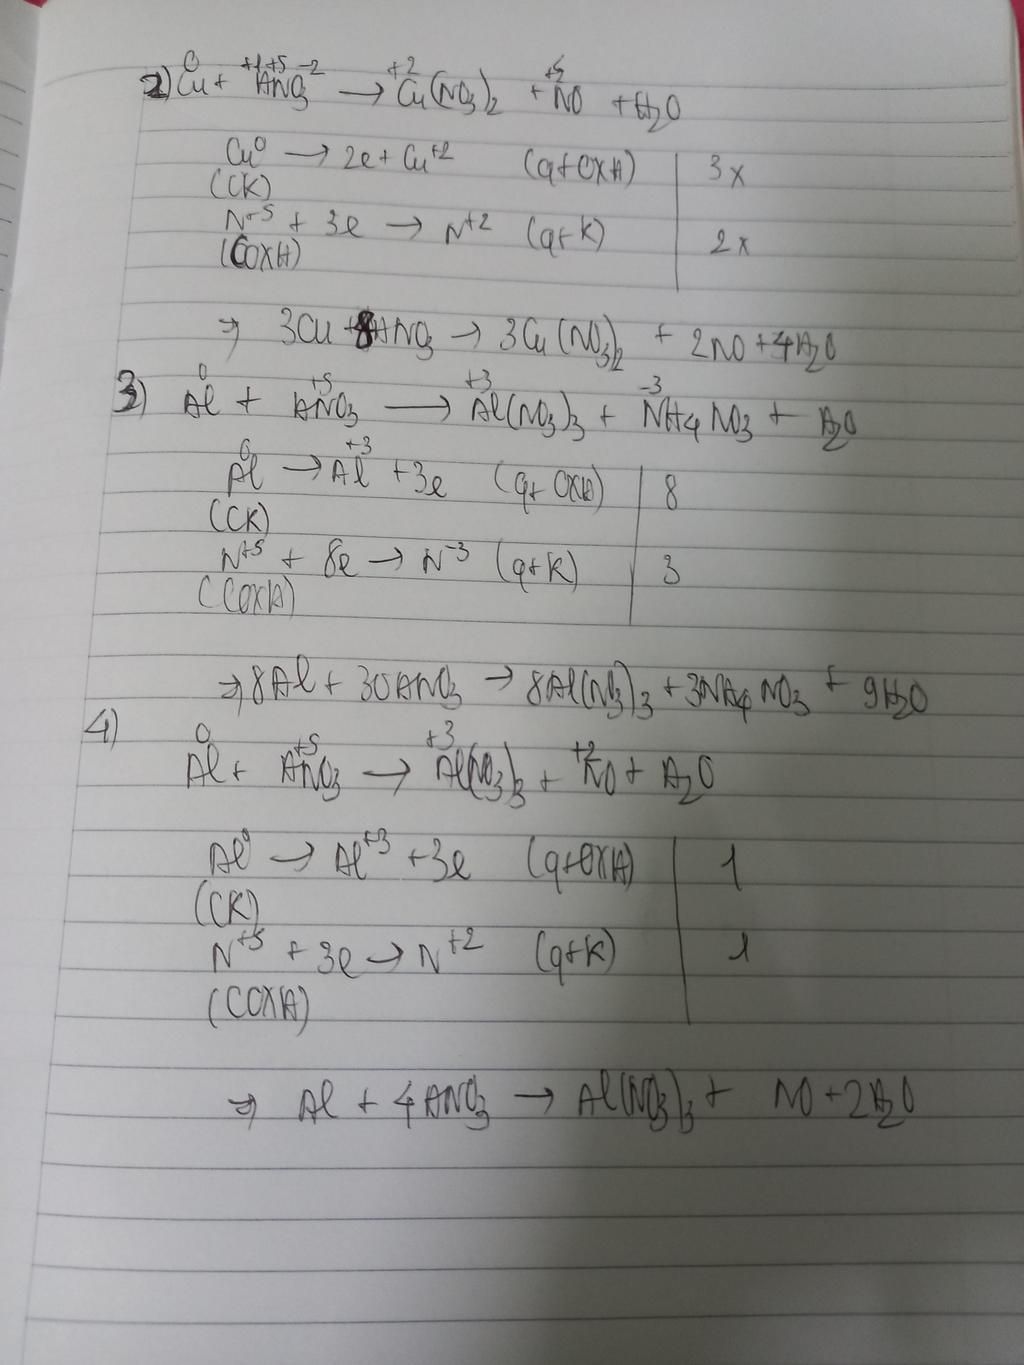 2) Cu⁰ + H⁺¹N⁺⁵O₃⁻² → Cu⁺²(NO₃)₂ + N⁺⁵O + H₂O
Cu⁰ → 2e + Cu⁺² (qt OXH) | 3x
(CK)
N⁺⁵ + 3e → N⁺² (qt K) | 2x
(COXH)
⇒ 3Cu + 8HNO₃ → 3Cu(NO₃)₂ + 2NO + 4H₂O
3) Al⁰ + HN⁺⁵O₃ → Al⁺³(NO₃)₃ + N⁻³H₄NO₃ + H₂O
Al⁰ → Al⁺³ + 3e (qt OXH) | 8
(CK)
N⁺⁵ + 8e → N⁻³ (qt K) | 3
(COXH)
⇒ 8Al + 30HNO₃ → 8Al(NO₃)₃ + 3NH₄NO₃ + 9H₂O
4)
Al⁰ + HN⁺⁵O₃ → Al⁺³(NO₃)₃ + N⁺²O + H₂O
Al⁰ → Al⁺³ + 3e (qt OXH) | 1
(CK)
N⁺⁵ + 3e → N⁺² (qt K) | 1
(COXH)
⇒ Al + 4HNO₃ → Al(NO₃)₃ + NO + 2H₂O